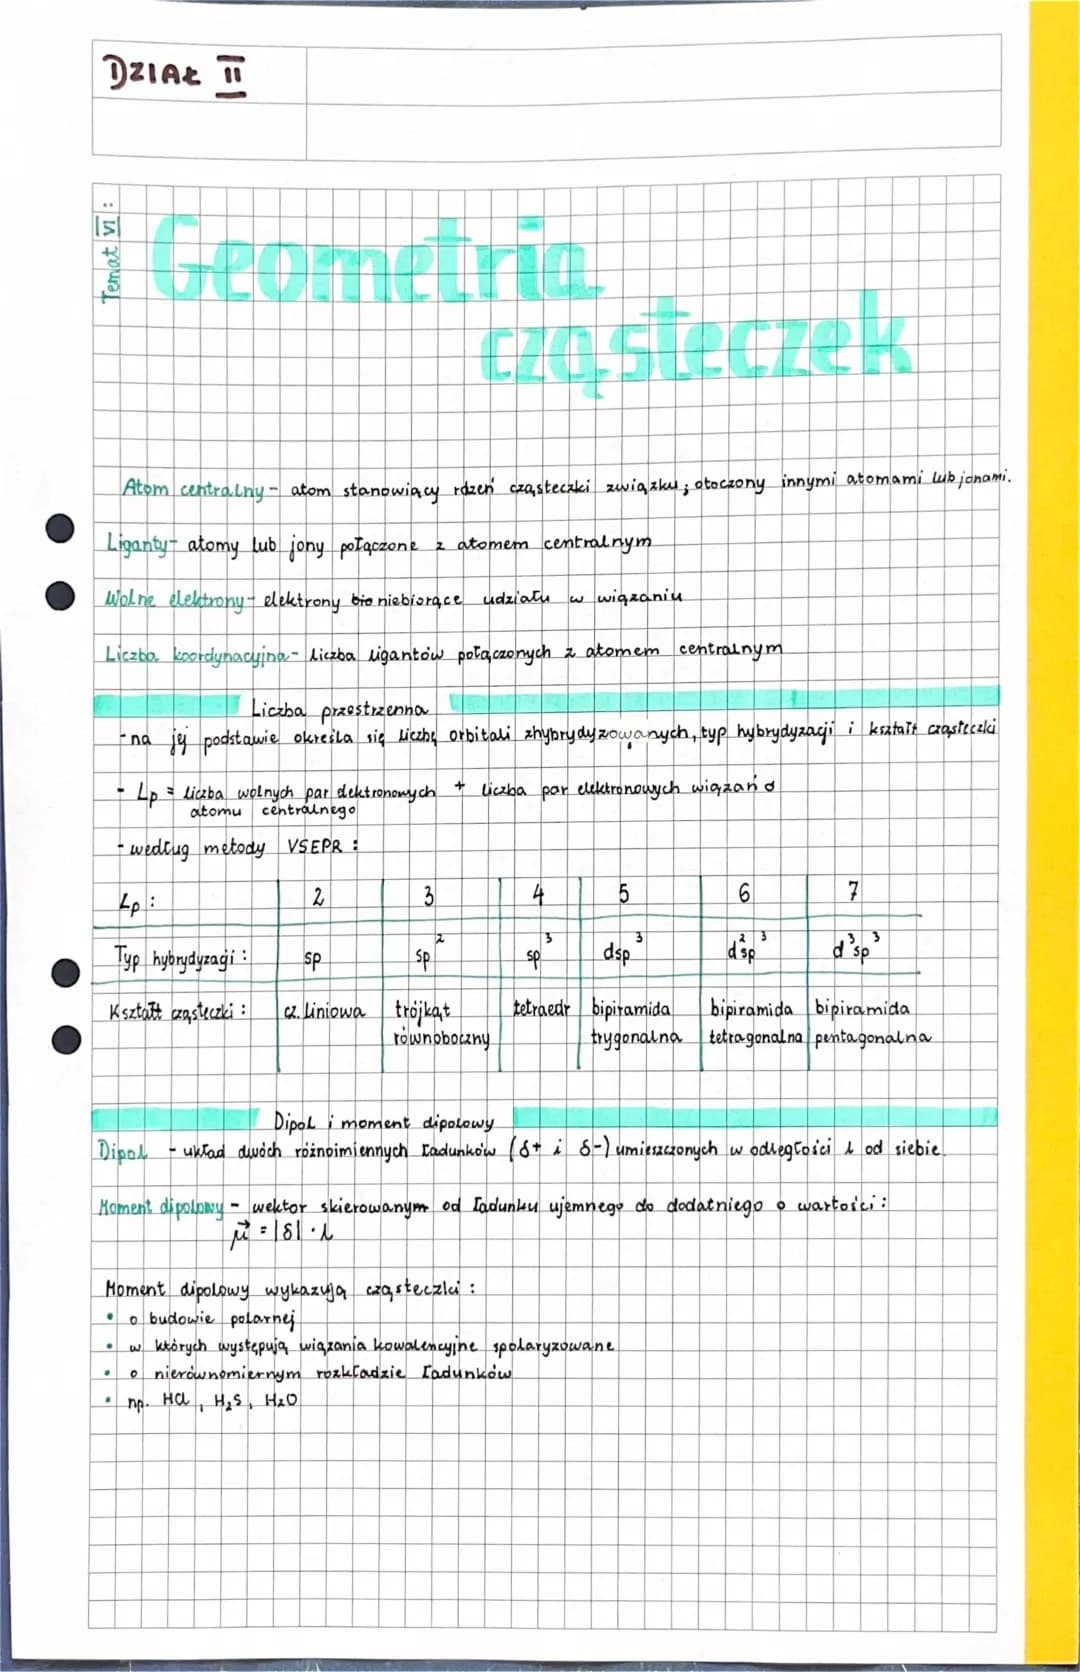 DZIAŁ II
Temat VI:
Geometria
cząsteczek
Atom centralny - atom stanowiący rdzeń cząsteczki związku; otoczony innymi atomami lub jonami.
Liganty - atomy lub jony połączone z atomem centralnym
Wolne elektrony - elektrony niebiorące udziału w wiązaniu
Liczba koordynacyjna - liczba ligantów połączonych z atomem centralnym
Liczba przestrzenna
- na jej podstawie określa się liczbę orbitali zhybrydyzowanych, typ hybrydyzacji i kształt cząsteczki
- Lp = liczba wolnych par elektronowych + liczba par elektronowych wiązań σ
atomu centralnego
- według metody VSEPR:
Lp: 2 3 4 5 6 7
Typ hybrydyzacji: sp sp² sp³ dsp³ d²sp³ d³sp³
Kształt cząsteczki: cz. liniowa trójkąt tetraedr bipiramida bipiramida bipiramida
równoboczny trygonalna tetragonalna pentagonalna
Dipol i moment dipolowy
Dipol - układ dwóch różnoimiennych ładunków (δ+ i δ-) umieszczonych w odległości l od siebie.
Moment dipolowy - wektor skierowanym od ładunku ujemnego do dodatniego o wartości:
μ⃗ = |δ| · l
Moment dipolowy wykazują cząsteczki:
• o budowie polarnej
• w których występują wiązania kowalencyjne spolaryzowane
• o nierównomiernym rozkładzie ładunków
• np. HCl, H₂S, H₂O